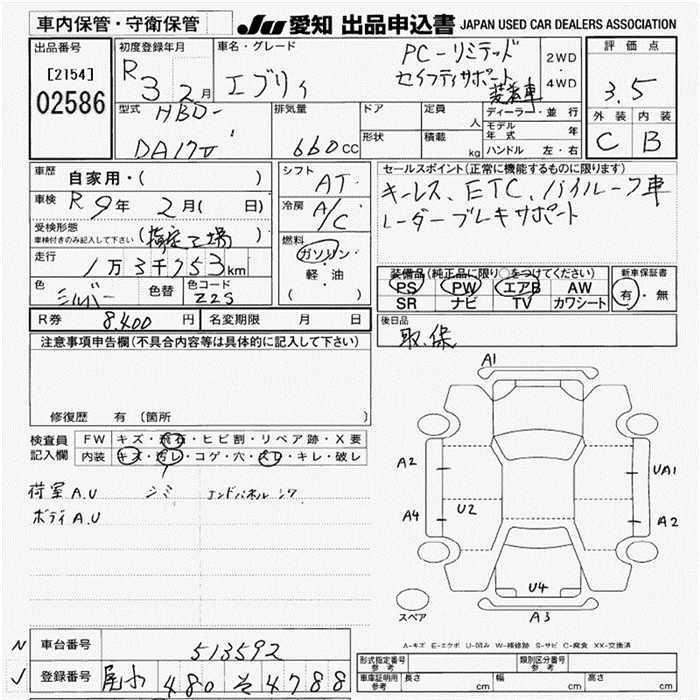 車内保管・守衛保管 JU 愛知 出品申込書 JAPAN USED CAR DEALERS ASSOCIATION
出品番号 初度登録年月 車名・グレード 評価点
[2154] R3 2月 エブリィ PC-リミテッド 2WD
02586 セイフティサポート装着車 ・4WD 3.5
型式 HBD- 排気量 ドア 定員 人 ディーラー・並行
モデル年式 年 外装 内装
DA17V 660cc 形状 積載 kg ハンドル 左・右 C B
車歴 自家用・( ) シフト AT セールスポイント(正常に機能するものに限ります)
車検 R9年 2月( 日) 冷房 A/C キーレス、ETC、ハイルーフ車
受検形態 レーダーブレーキサポート
車検付きのみ記入して下さい (指定工場) 燃料
走行 1万3千753km ガソリン 装備品(純正品に限り○をつけてください) 新車保証書
軽・油 PS PW エアB AW 有・無
色 シルバー 色替 色コード Z2S ( ) SR ナビ TV カワシート
R券 8,400円 名変期限 月 日 後日品
注意事項申告欄(不具合内容等は具体的に記入して下さい) 取、保
修復歴 有 [箇所 ]
検査員記入欄 FW キズ・飛石・ヒビ割・リペア跡・X要
内装 キズ・汚レ・コゲ・穴・スレ・キレ・破レ
荷室A.U シミ エンドパネルシワ
ボディA.U
A1
A2 UA1
A4 U2 A2
U4
スペア A3
A-キズ E-エクボ U-凹み W-補修跡 S-サビ C-腐食 XX-交換済
N 車台番号 513592 形式指定番号 参考 類別区分番号 参考
✓ 登録番号 尾小 480 そ 4788 車庫証明用 参考 長さ cm 幅 cm 高さ cm